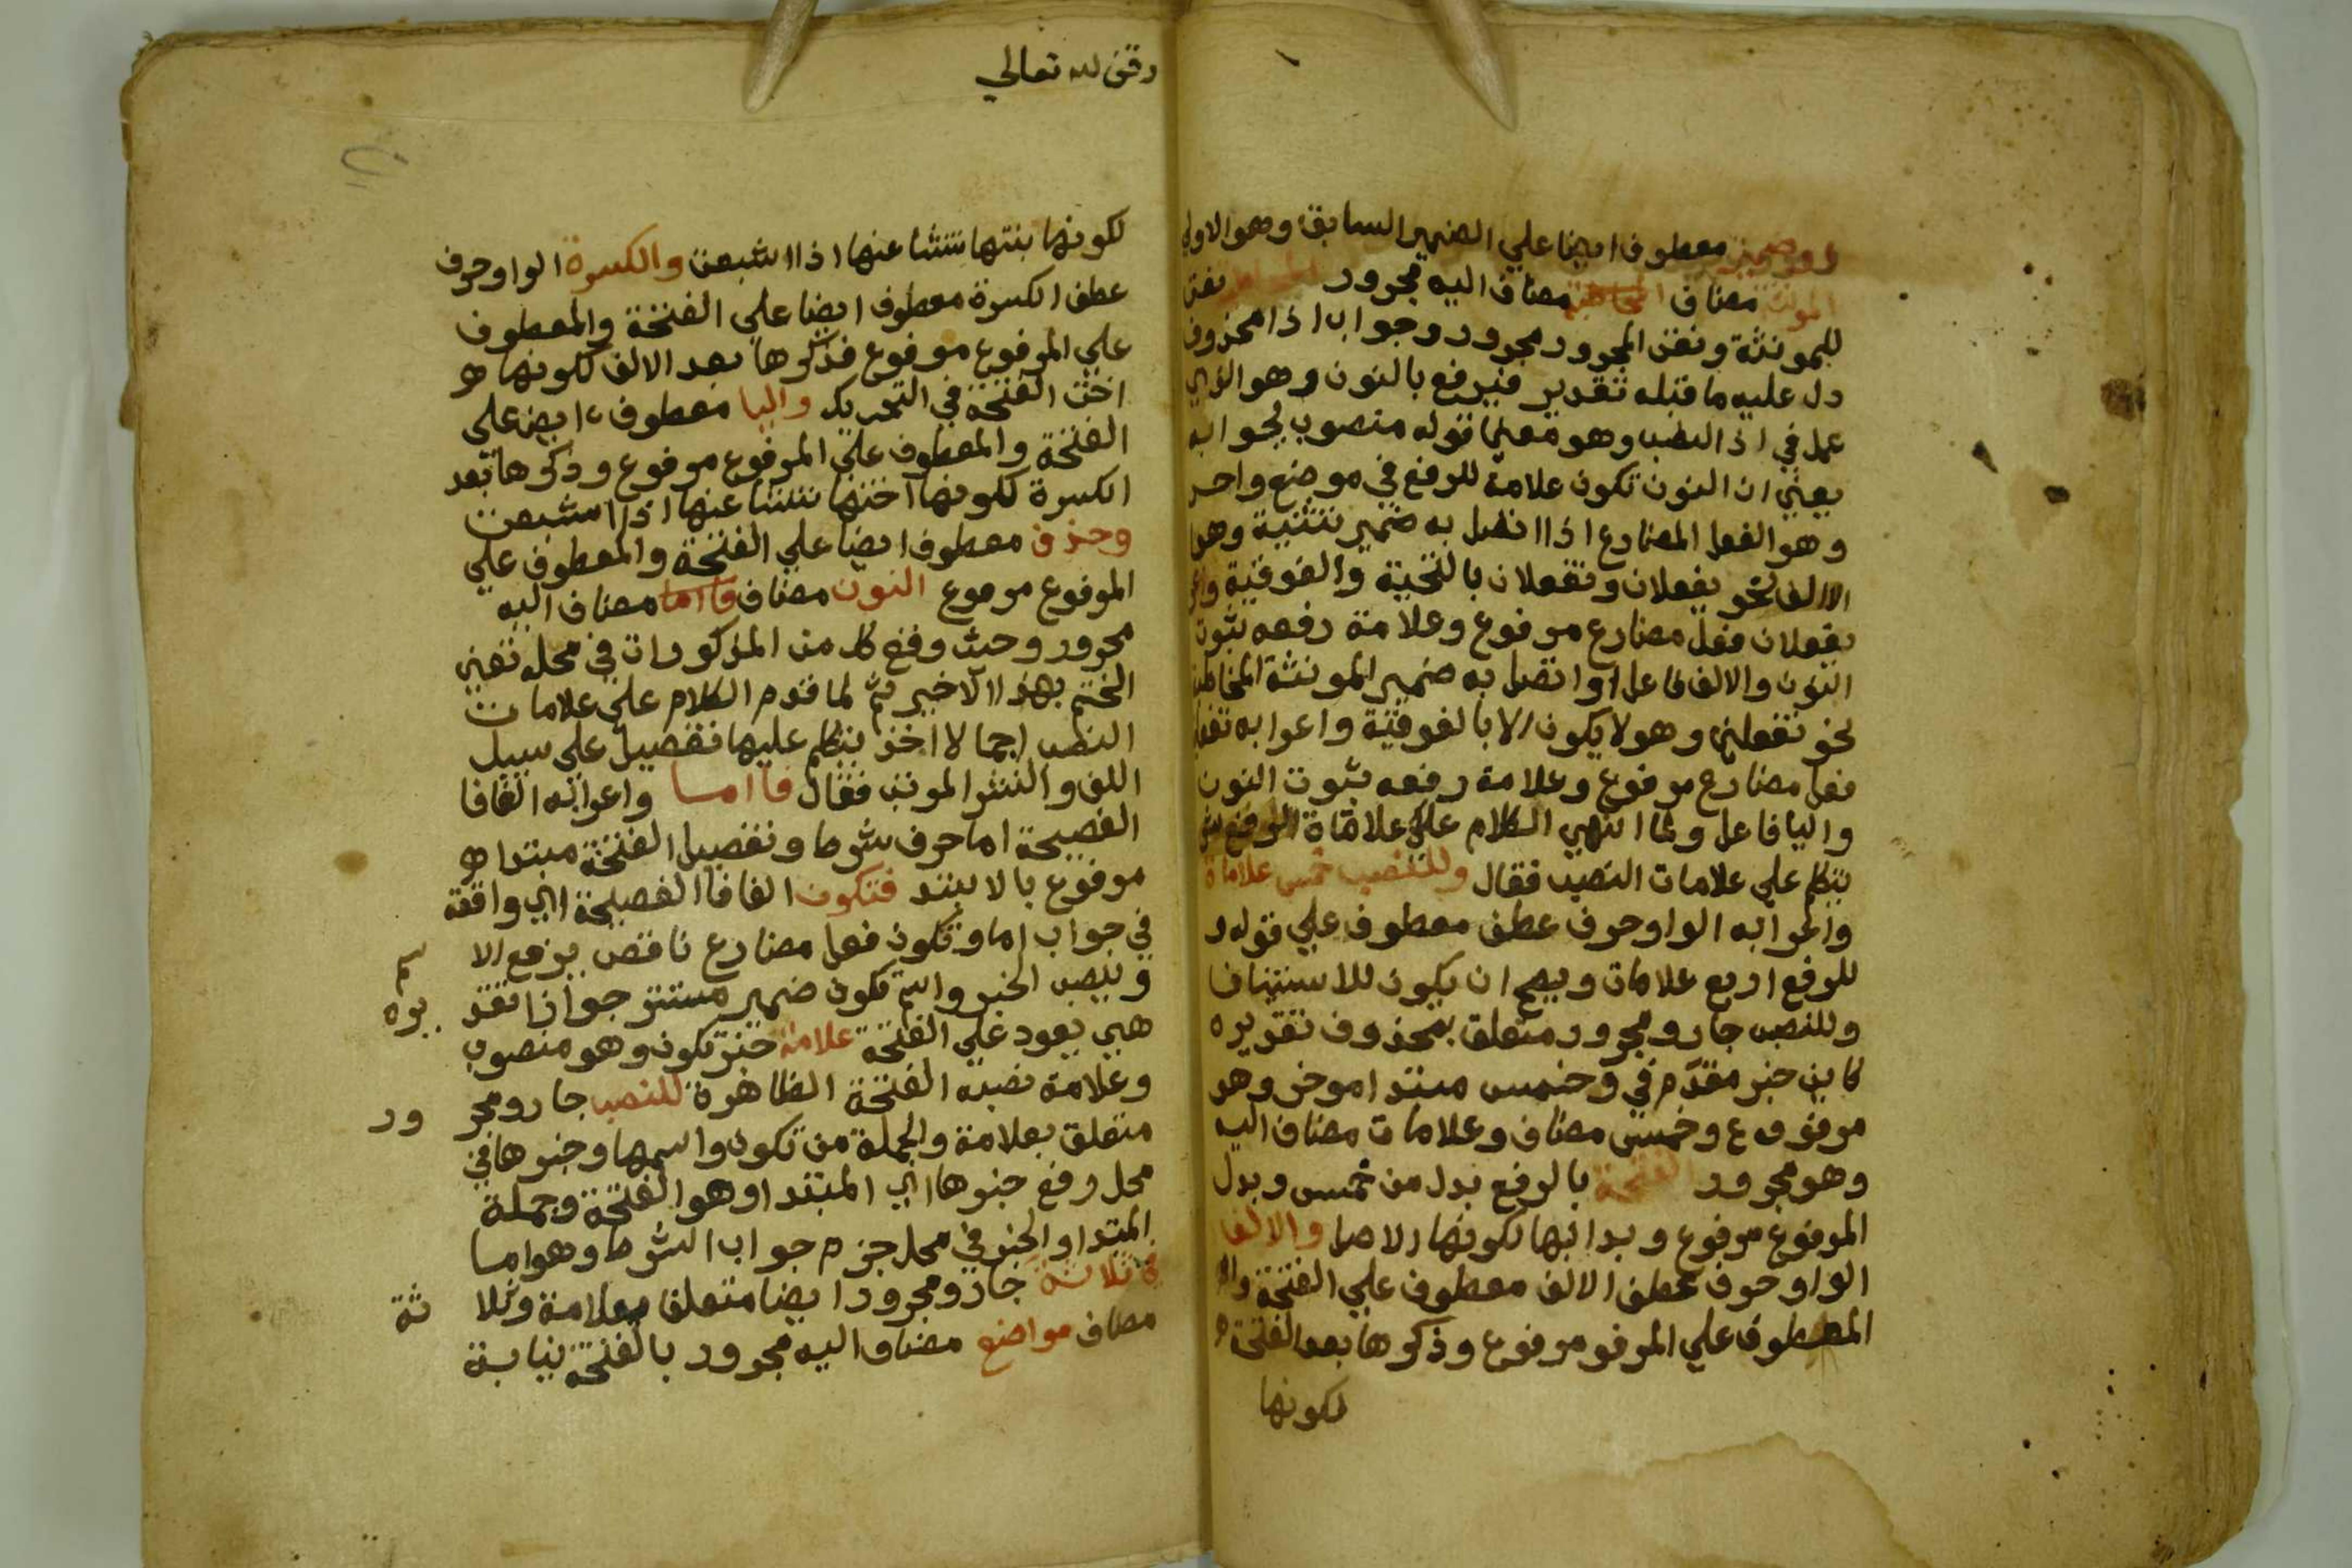 او ضمير معطوف ايضا علي الضمير السابق وهو الاول
المونثة مضاف المخاطبة مضاف اليه مجرور المخاطبة نعت
للمونثة ونعت المجرور مجرور وجواب اذا محذوف
دل عليه ما قبله تقدير فيرفع بالنون وهو الذي
عمل في اذا النصب وهو معني قوله منصوب بجوابه
يعني ان النون تكون علامة للرفع في موضع واحد
وهو الفعل المضارع اذا اتصل به ضمير تثنية وهو
الالف نحو يفعلان وتفعلان بالتحية والفوقية
يفعلان فعل مضارع مرفوع وعلامة رفعه ثبوت
النون والالف فاعل او اتصل به ضمير المونثة المخاطبة
نحو تفعلين وهو لا يكون الا بالفوقية واعرابه
فعل مضارع مرفوع وعلامة رفعه ثبوت النون
واليا فاعل ولما انتهي الكلام علي علاماة الرفع
يتكلم علي علامات النصب فقال وللنصب خمس علاماة
واعرابه الواو حرف عطف معطوف علي قوله و
للرفع اربع علامات ويصح ان يكون للاستيناف
وللنصب جار ومجرور متعلق بمحذوف تقديره
كاين خبر مقدم في وخمس مبتدا موخر وهو
مرفوع وخمس مضاف وعلامات مضاف اليه
وهو مجرور الفتحة بالرفع بدل من خمس وبدل
المرفوع مرفوع وبدا بها لكونها الاصل والالف
الواو حرف عطف الالف معطوف علي الفتحة
المعطوف علي المرفو مرفوع وذكرها بعد الفتحة
لكونها
وقف لله تعالي
لكونها بنتها تنشا عنها اذا اشبعت والكسرة الواو حرف
عطف الكسرة معطوف ايضا علي الفتحة والمعطوف
علي المرفوع مرفوع فذكرها بعد الالف لكونها
اخت الفتحة في التحريك واليا معطوف ايض علي
الفتحة والمعطوف علي المرفوع مرفوع وذكرها بعد
الكسرة لكونها اختها تنشا عنها اذا اشبعت
وحذف معطوف ايضا علي الفتحة والمعطوف علي
المرفوع مرموع النون مضاف فاما مضاف اليه
مجرور وحيث وقع كل من المذكورات في محله تعين
الختم بهذا الاخير ثم لما قدم الكلام علي علامات
النصب اجمالا اخذ يتكلم عليها تفصيل علي سبيل
اللف والنشر المرتب فقال فااما واعرابه الفافا
الفصيحة اما حرف شرط وتفصيل الفتحة مبتدا
مرفوع بالابتد فتكون الفافا الفصيحة اي واقعة
في جواب اما وتكون فعل مضارع ناقص يرفع الا سم
وينصب الخبر واسم تكون ضمير مستتر جوازا تقد يره
هي يعود علي الفتحة علامة خبر تكون وهو منصوب
وعلامة نصبه الفتحة الظاهرة للنصب جار ومجر ور
متعلق بعلامة والجملة من تكون واسمها وخبرها في
محل رفع خبرها اي المبتدا وهو الفتحة وجملة
المبتدا والخبر في محل جزم جواب الشرط وهو اما
في ثلاثة جار ومجرور ايضا متعلق بعلامة وثلا ثة
مضاف مواضع مضاف اليه مجرور بالفتحة نيابة